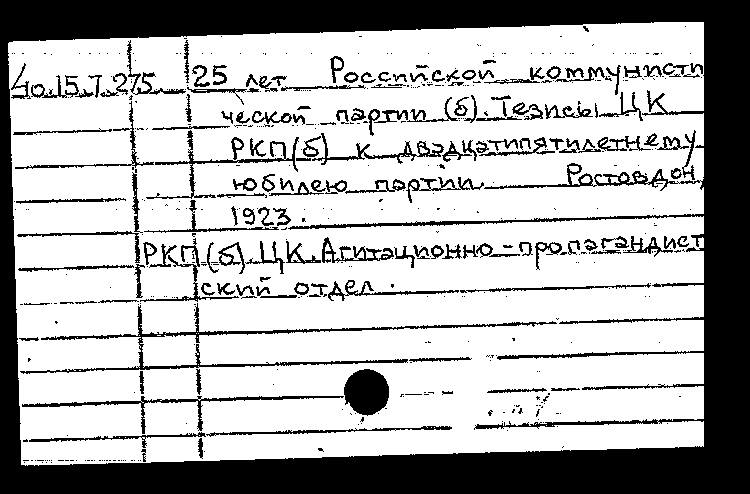 40.15.7.275. 25 лет Российской коммунисти
ческой партии (б). Тезисы ЦК
РКП(б) к двадцатипятилетнему
юбилею партии. Ростовдон,
1923.
РКП(б). ЦК. Агитационно-пропагандист
ский отдел.